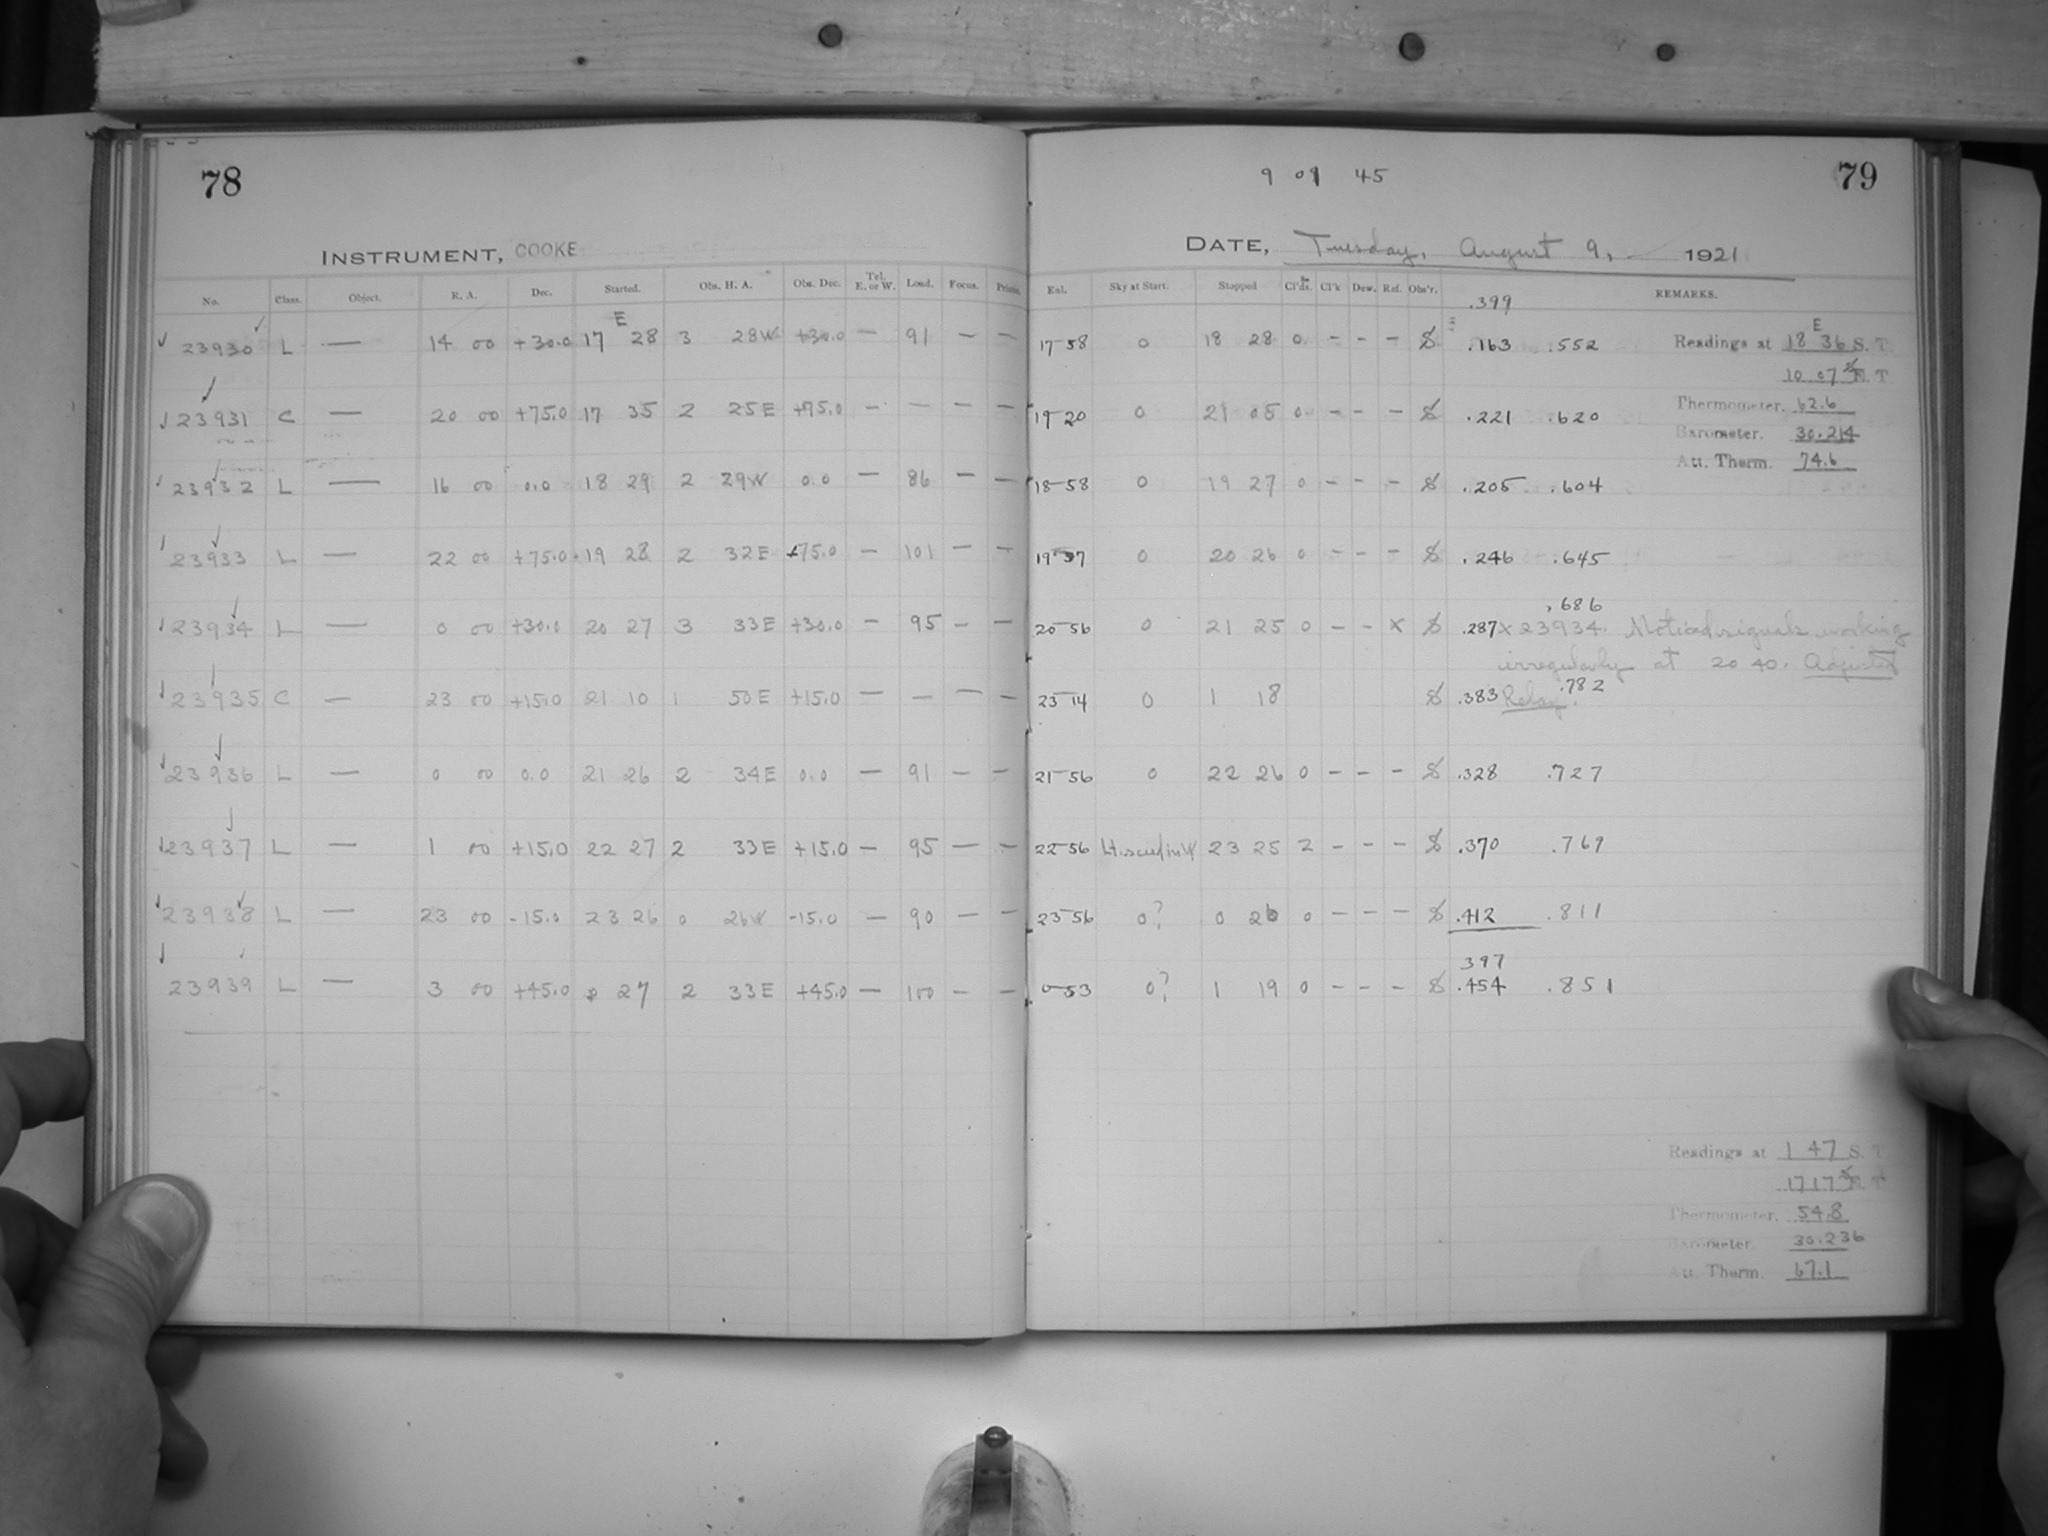 78
INSTRUMENT, COOKE
No. Class. Object. R. A. Dec. Started. Obs. H. A. Obs. Dec. Tel. E. or W. Load. Focus.
E
23930 L — 14 00 +30.0 17 28 3 28W +30.0 — 91 — —
23931 C — 20 00 +75.0 17 35 2 25E +75.0 — — — —
23932 L — 16 00 0.0 18 29 2 29W 0.0 — 86 — —
23933 L — 22 00 +75.0 19 28 2 32E +75.0 — 101 — —
23934 L — 0 00 +30.0 20 27 3 33E +30.0 — 95 — —
23935 C — 23 00 +15.0 21 10 1 50E +15.0 — — — —
23936 L — 0 00 0.0 21 26 2 34E 0.0 — 91 — —
23937 L — 1 00 +15.0 22 27 2 33E +15.0 — 95 — —
23938 L — 23 00 -15.0 23 26 0 26W -15.0 — 90 — —
23939 L — 3 00 +45.0 27 2 33E +45.0 — 100 — —
79
9 01 45
DATE, Tuesday, August 9, 1921
Sky at Start. Stopped Cl'k Dew. Ref. Obs'r. REMARKS.
.399
17 58 0 18 28 0 - - - S .163 .552
19 20 0 21 05 0 - - - S .221 .620
18 58 0 19 27 0 - - - S .205 .604
19 57 0 20 26 0 - - - S .246 .645
.686
20 56 0 21 25 0 - - x S .287 x 23934. Noticed signals working
irregularly at 20 40. Adjusted
23 14 0 1 18 S .383 Relay. .782
21 56 0 22 26 0 - - - S .328 .727
22 56 23 25 2 - - - S .370 .769
23 56 0? 0 26 0 - - - S .412 .811
397
0 53 0? 1 19 0 - - - S .454 .851
E
Readings at 18 36 S. T.
10 07 S. T.
Thermometer. 62.6
Barometer. 30.214
Att. Therm. 74.6
Readings at 1 47 S. T.
17 17 S. T.
Thermometer. 54.8
Barometer. 30.236
Att. Therm. 67.1